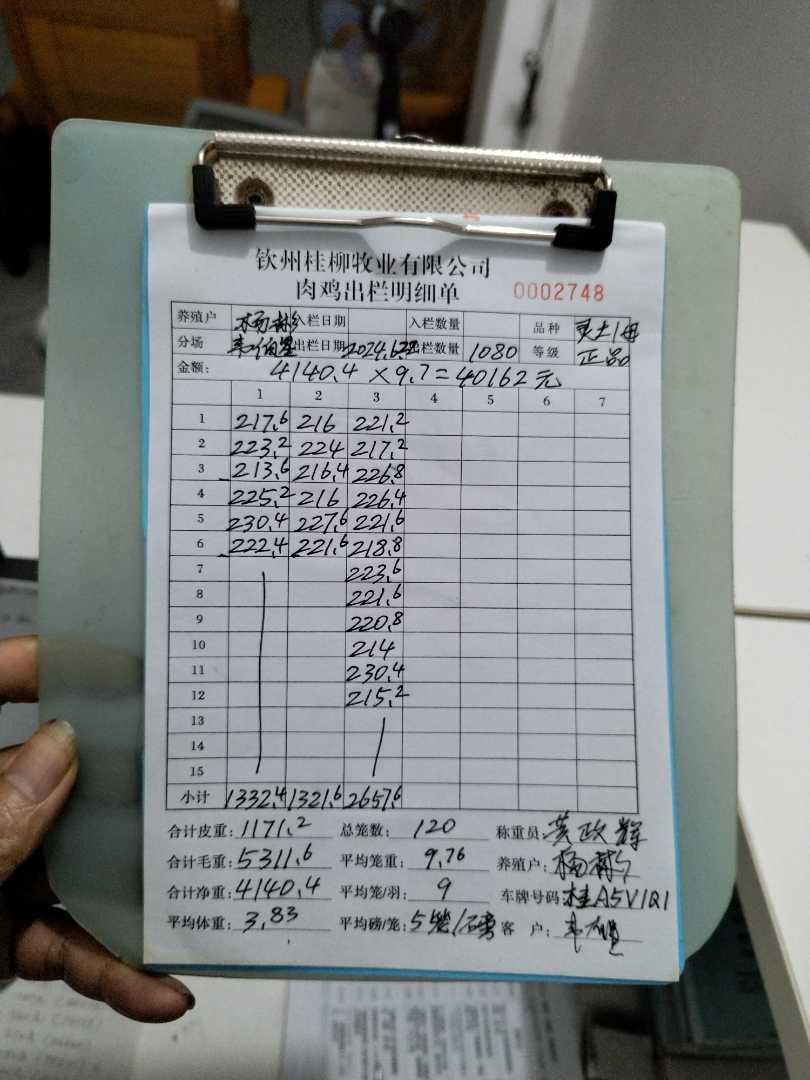 钦州桂柳牧业有限公司
肉鸡出栏明细单 0002748
养殖户 杨彬 入栏日期 入栏数量 品种 灵土1母
分场 出栏日期 2024.6.22 出栏数量 1080 等级 正品
金额: 4140.4 ×9.7=40162元
1 2 3 4 5 6 7
1 217.6 216 221.2
2 223.2 224 217.2
3 213.6 216.4 226.8
4 225.2 216 226.4
5 230.4 227.6 221.6
6 222.4 221.6 218.8
7 223.6
8 221.6
9 220.8
10 214
11 230.4
12 215.2
13
14
15
小计 1332.4 1321.6 2657.6
合计皮重: 1171.2 总笼数: 120 称重员: 黄政辉
合计毛重: 5311.6 平均笼重: 9.76 养殖户: 杨彬
合计净重: 4140.4 平均笼/羽: 9 车牌号码: 桂A5V1Q1
平均体重: 3.83 平均磅/笼: 5笼/磅 客 户: